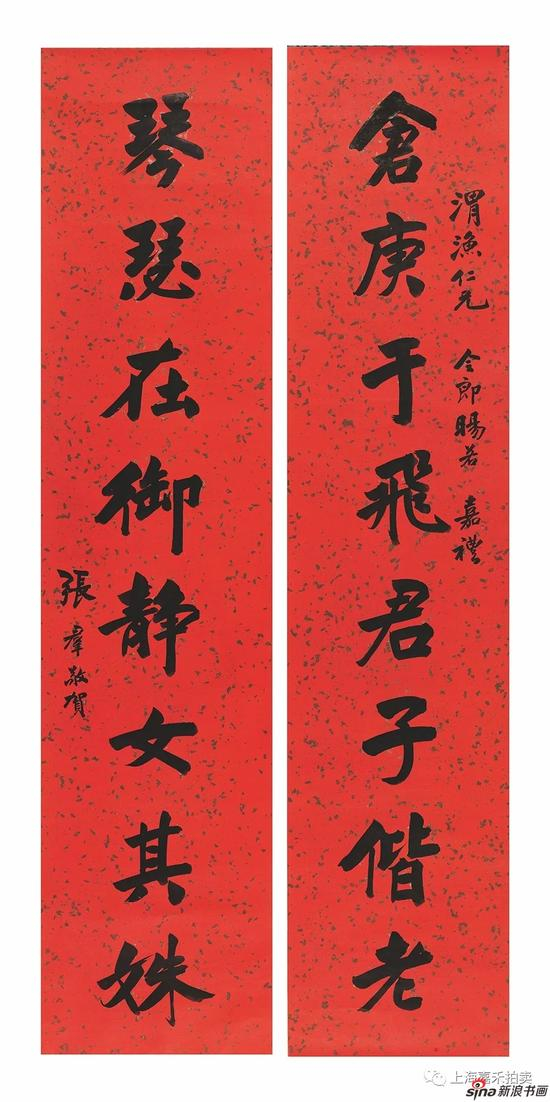 渭漁仁兄 令郎暘若 嘉禮
倉庚于飛君子偕老
琴瑟在御静女其姝
張羣敬賀
上海嘉禾拍卖
sina 新浪书画